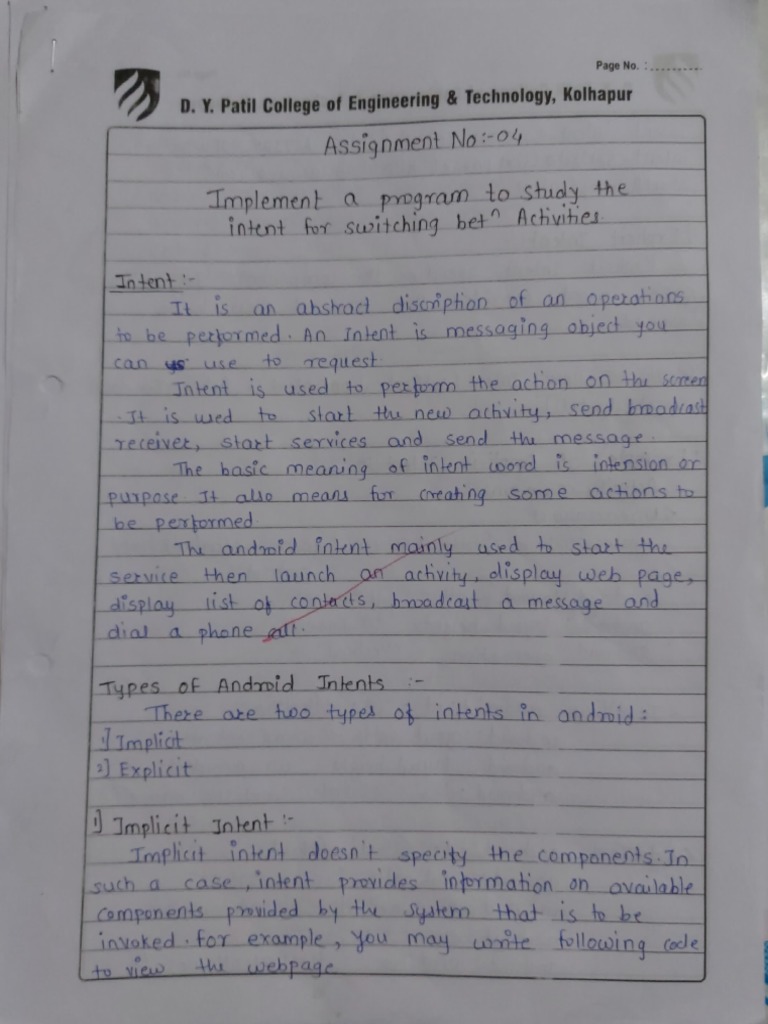 Page No. :..........
D. Y. Patil College of Engineering & Technology, Kolhapur
Assignment No:-04
Implement a program to study the
intent for switching betⁿ Activities
Intent :-
It is an abstract discription of an operations
to be performed. An Intent is messaging object you
can use to request
Intent is used to perform the action on the screen
. It is used to start the new activity, send broadcast
receiver, start services and send the message.
The basic meaning of intent word is intension or
purpose. It also means for creating some actions to
be performed
The android intent mainly used to start the
service then launch an activity, display web page,
display list of contacts, broadcast a message and
dial a phone call.
Types of Android Intents :-
There are two types of intents in android :
1] Implicit
2] Explicit
1] Implicit Intent :-
Implicit intent doesn't specify the components. In
such a case, intent provides information on available
components provided by the system that is to be
invoked. for example, you may write following code
to view the webpage